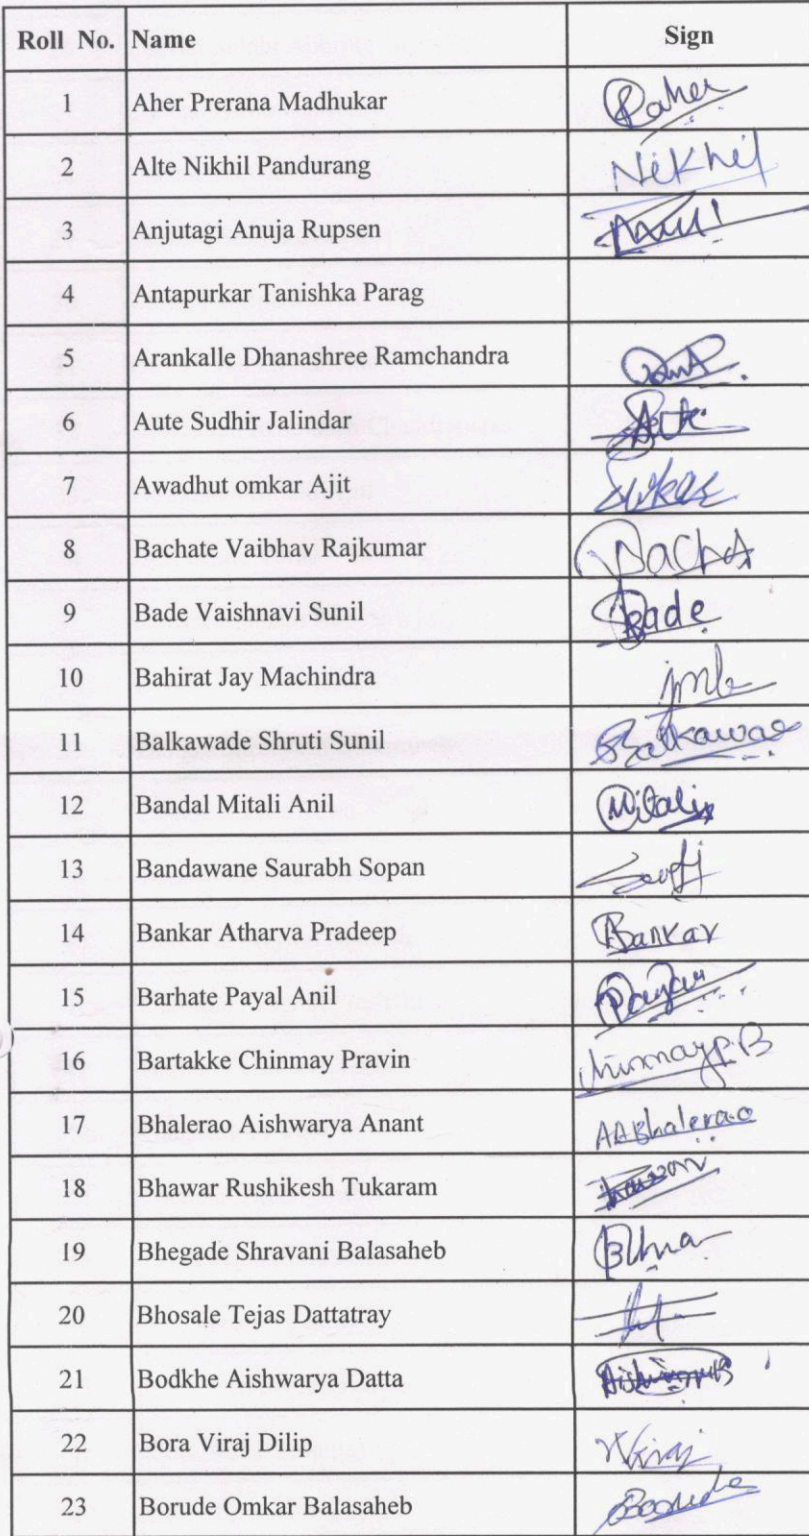 Roll No. Name Sign
1 Aher Prerana Madhukar Paher
2 Alte Nikhil Pandurang Nikhil
3 Anjutagi Anuja Rupsen
4 Antapurkar Tanishka Parag
5 Arankalle Dhanashree Ramchandra
6 Aute Sudhir Jalindar
7 Awadhut omkar Ajit
8 Bachate Vaibhav Rajkumar
9 Bade Vaishnavi Sunil Bade
10 Bahirat Jay Machindra jmb
11 Balkawade Shruti Sunil
12 Bandal Mitali Anil Mitali
13 Bandawane Saurabh Sopan
14 Bankar Atharva Pradeep Bankar
15 Barhate Payal Anil
16 Bartakke Chinmay Pravin Chinmay P.B
17 Bhalerao Aishwarya Anant AABhalerao
18 Bhawar Rushikesh Tukaram
19 Bhegade Shravani Balasaheb
20 Bhosale Tejas Dattatray
21 Bodkhe Aishwarya Datta
22 Bora Viraj Dilip Viraj
23 Borude Omkar Balasaheb Borude